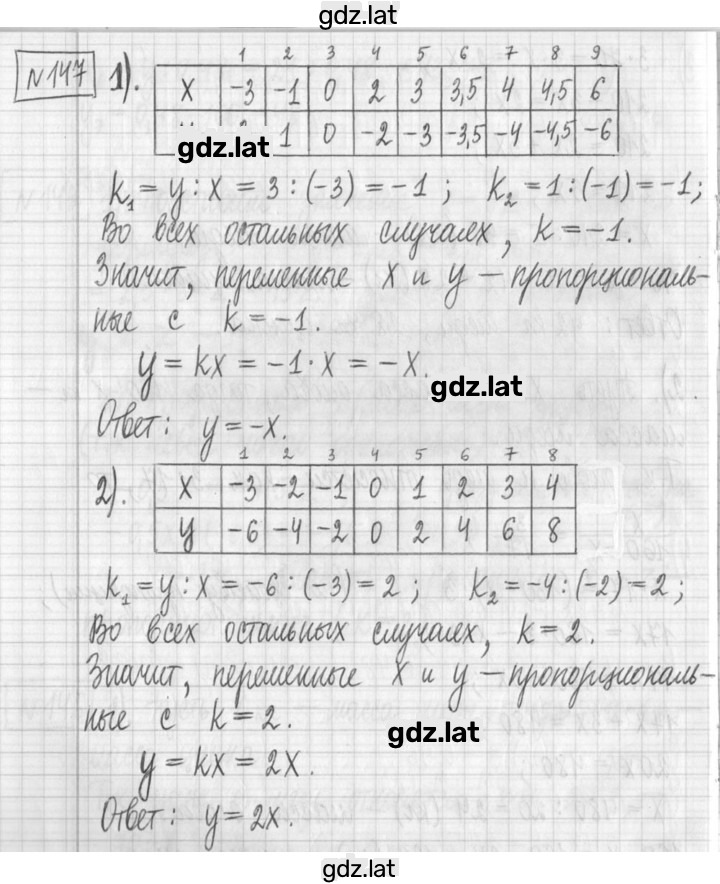 gdz.lat
N147 1).
1 2 3 4 5 6 7 8 9
X -3 -1 0 2 3 3,5 4 4,5 6
1 0 -2 -3 -3,5 -4 -4,5 -6
gdz.lat
k₁ = y : x = 3 : (-3) = -1 ; k₂ = 1 : (-1) = -1;
Во всех остальных случалех, k = -1.
Значит, переменные x и y – пропорциональ-
ные с k = -1.
y = kx = -1 · x = -x.
gdz.lat
Ответ: y = -x.
1 2 3 4 5 6 7 8
2). X -3 -2 -1 0 1 2 3 4
y -6 -4 -2 0 2 4 6 8
k₁ = y : x = -6 : (-3) = 2 ; k₂ = -4 : (-2) = 2 ;
Во всех остальных случалех, k = 2.
Значит, переменные x и y – пропорциональ-
ные с k = 2.
gdz.lat
y = kx = 2x.
Ответ: y = 2x.
gdz.lat